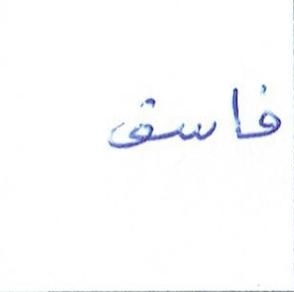 فاسق